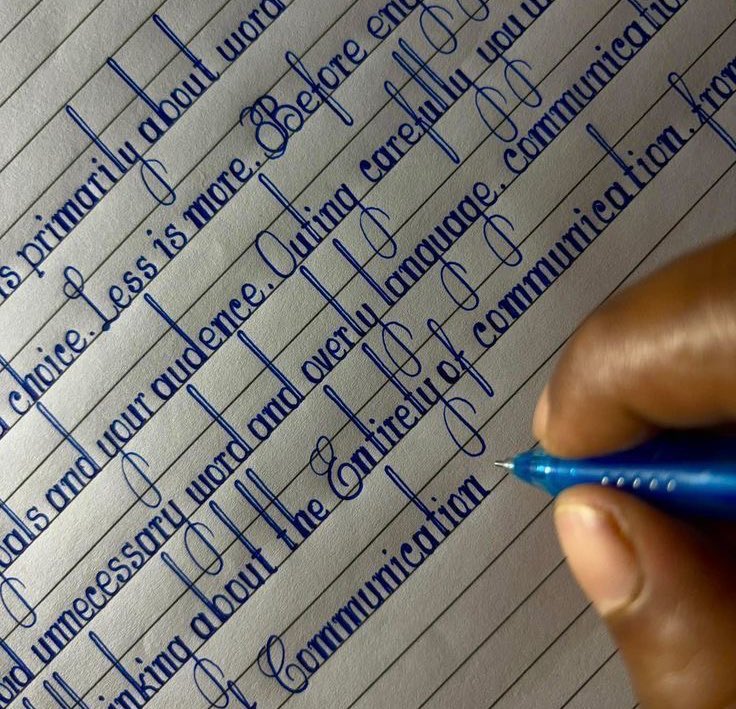 is primarily about word
choice. Less is more. Before
oals and your oudence. Outing carefully you
unnecessary word and overly language. communication
inking about the Entirety of communication. from
of Communication